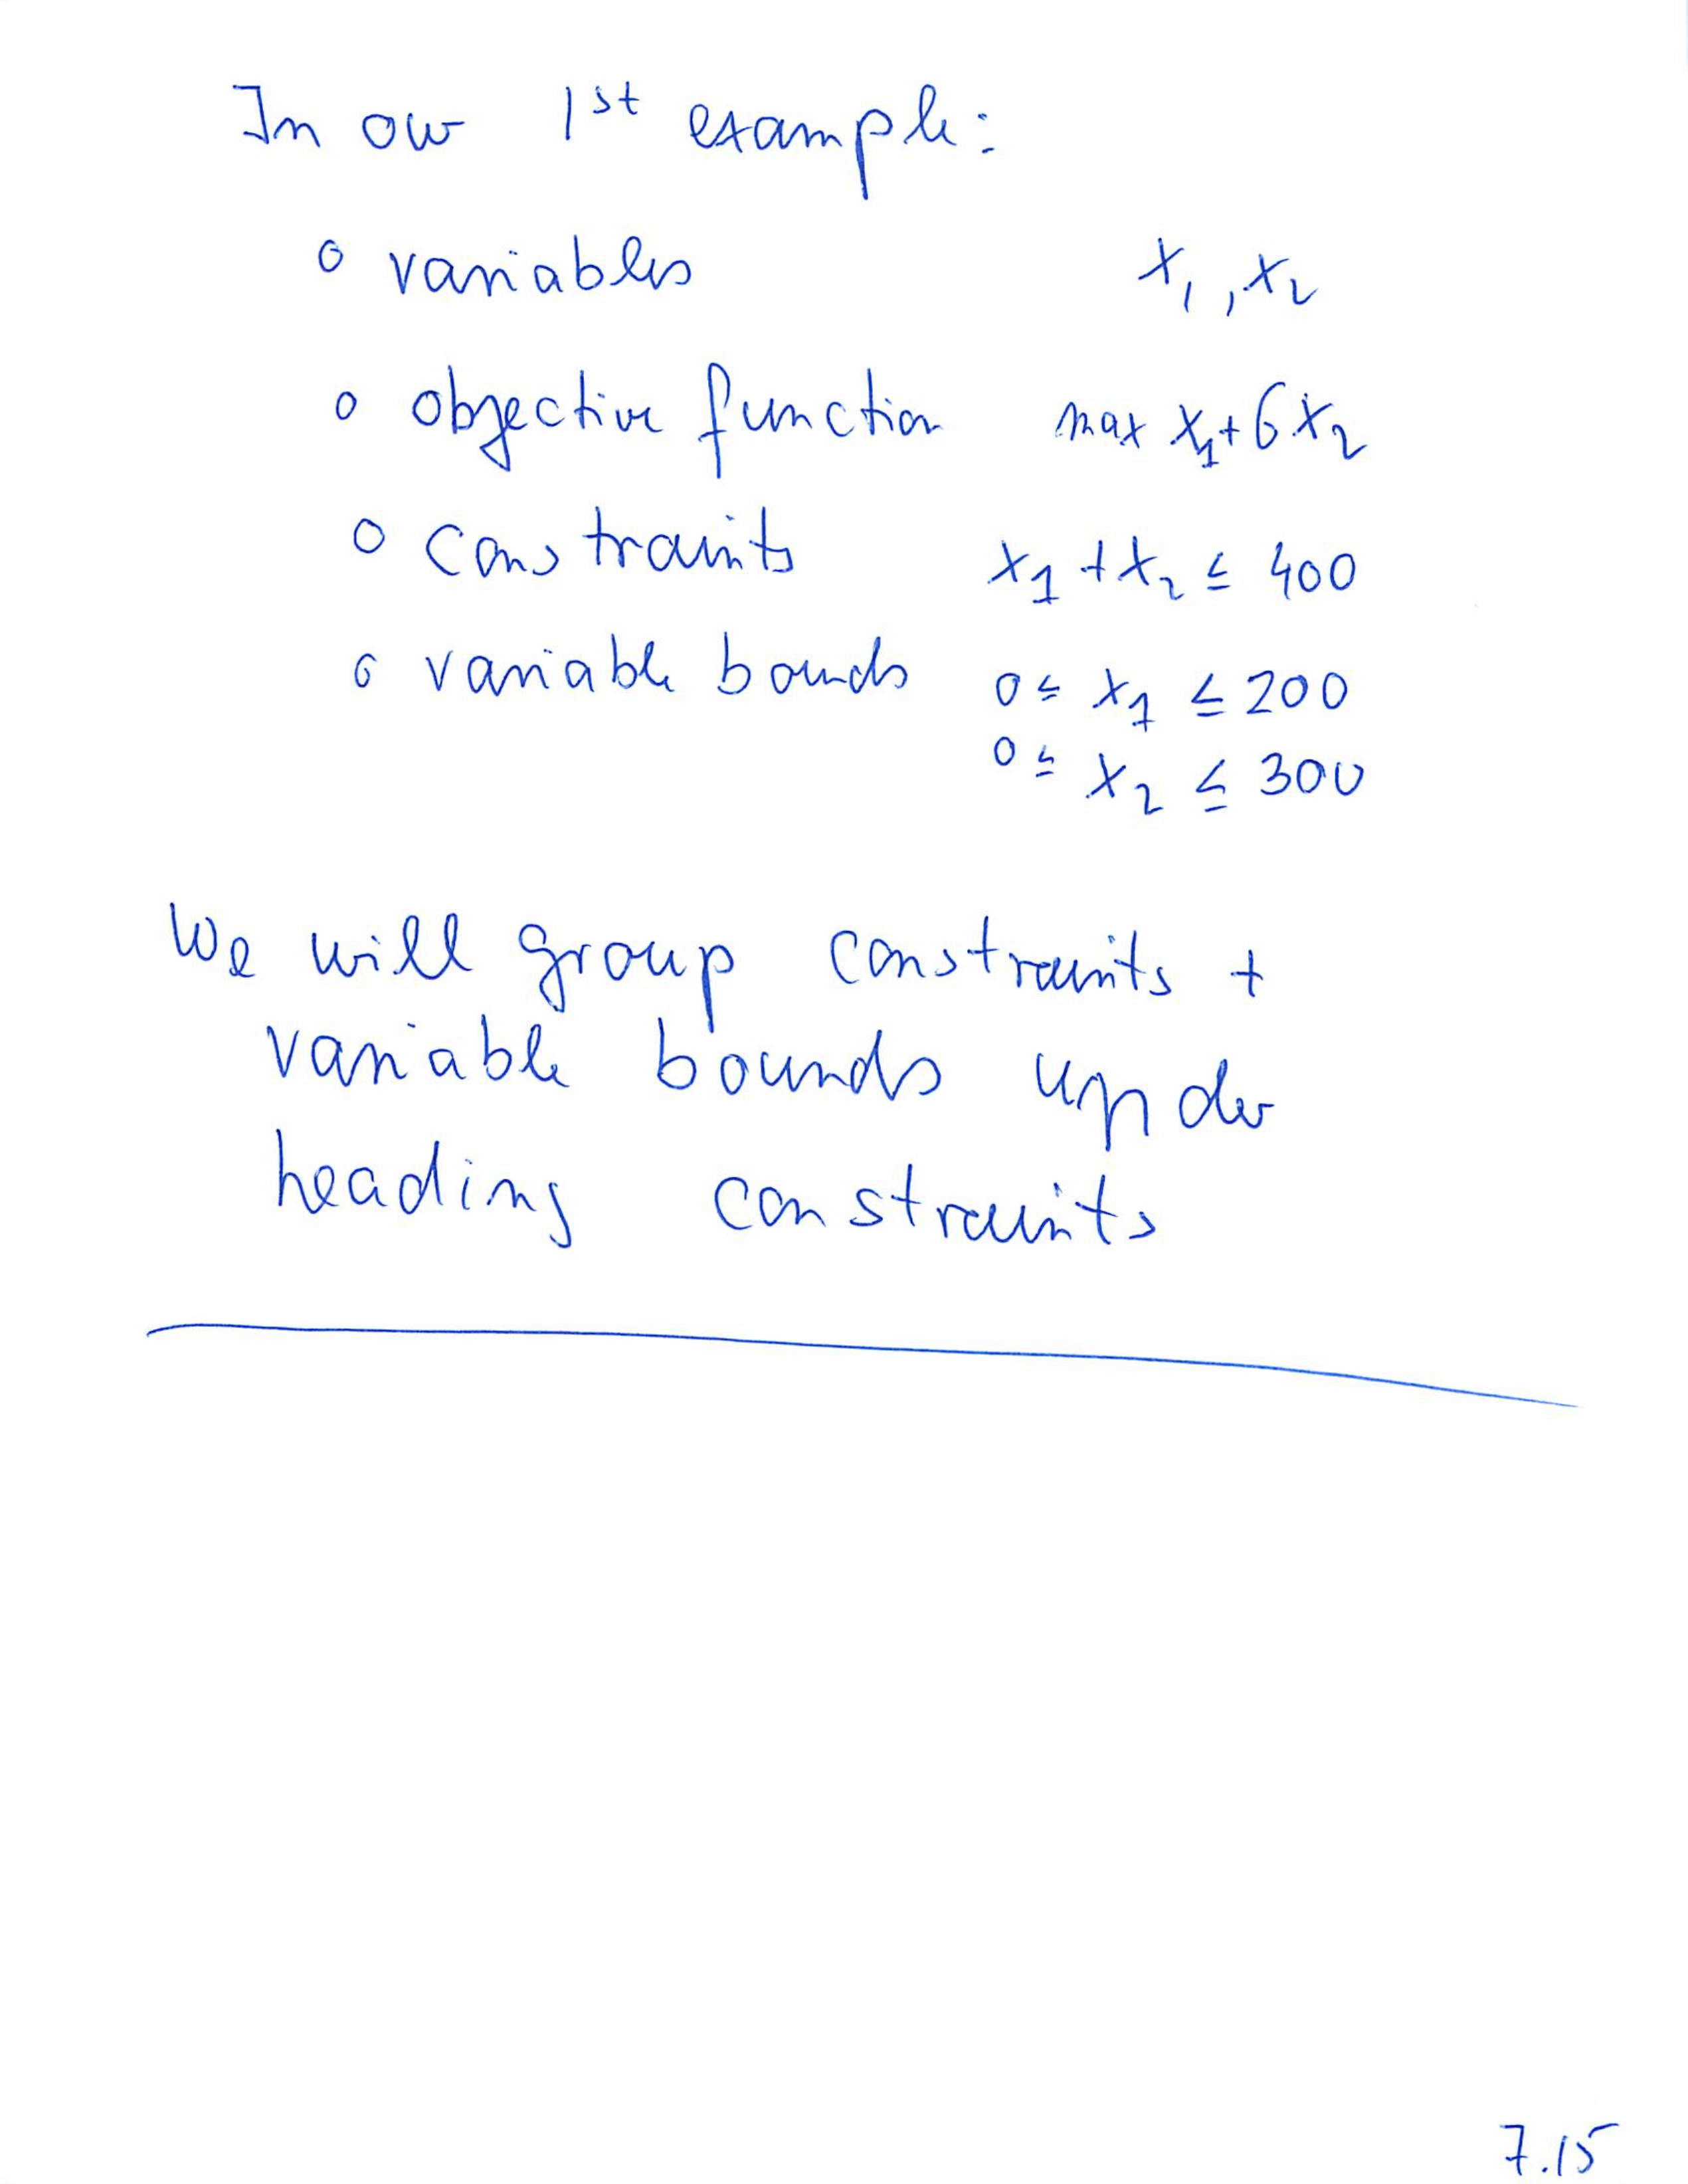 In our 1st example:
o variables x₁, x₂
o objective function max x₁+6x₂
o constraints x₁ + x₂ ≤ 400
o variable bounds 0 ≤ x₁ ≤ 200
0 ≤ x₂ ≤ 300
We will group constraints +
variable bounds under
heading constraints
7.15